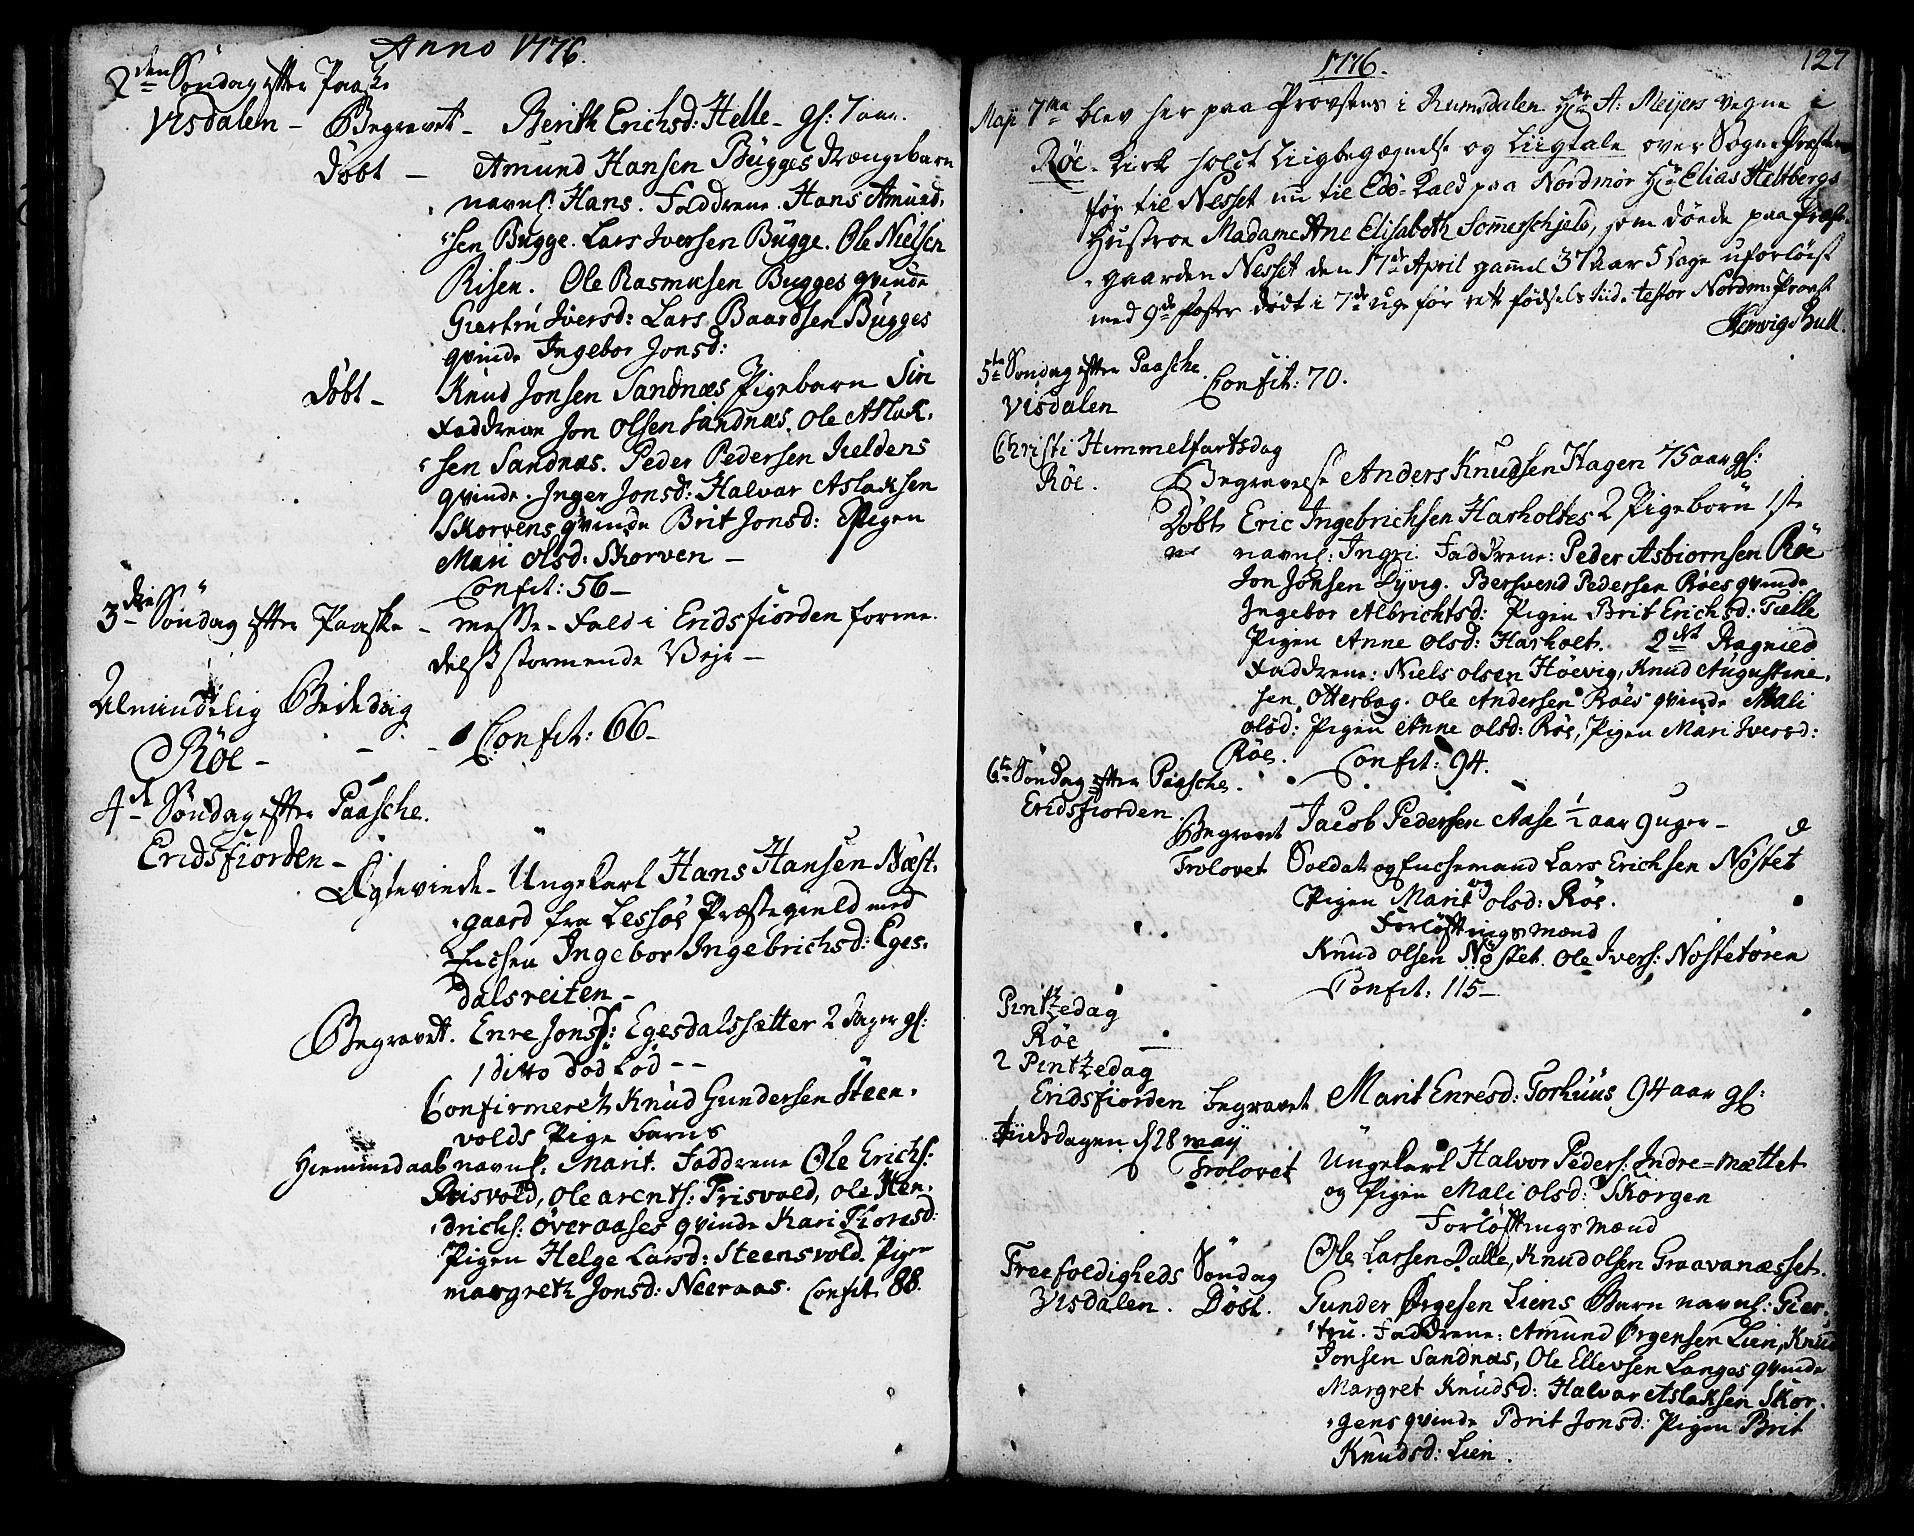 Anno 1776.
2den Søndag efter Paaske
Visdalen - Begravet - Berith Erichsd: Helle - gl: 7 aar.
Døbt - Amund Hansen Bugges Drængebarn
navnl: Hans. Faddrene. Hans Amund-
sen Bugge. Lars Iversen Bügge. Ole Nielsen
Risen. Ole Rasmusen Bugges qvinde
Giertru Iversd: Lars Baardsen Bügges
qvinde Ingebor Jonsd:
Døbt - Knud Jonsen Sandnæs Pigebarn Siri
Faddrene Jon Olsen Sandnæs. Ole Aslak-
sen Sandnæs. Peder Pedersen Kieldens
qvinde. Inger Jonsd: Halvar Aslaksen
Skorvens qvinde Brit Jonsd: Pigen
Mari Olsd: Skorven -
Confit: 56 -
3die Søndag efter Paaske - Messe-Fald i Eridsfiorden forme-
delst stormende Vejr -
Almindelig Bededag
Røe - - - Confit: 66 -
4de Søndag efter Paasche.
Eridsfiorden -
Ægteviede - Ungekarl Hans Hansen Næst-
gaard fra Lessøe Præstegield med
Enchen Ingebor Ingebrichsd: Eges-
dalsreiten -
Begravet. Enre Jons: Egesdalssætter 2 Dager gl:
1 ditto død fød - -
Confirmeret Knud Gundersen Steen-
volds Pige barns
Hiemmedaab navnl: Marit. Faddrene Ole Erichs:
Frisvold, Ole Arents: Frisvold, Ole Hen-
drichs: Øveraases qvinde Kari Thorsd:
Pigen Helge Larsd: Steensvold. Pigen
Margreth Jonsd: Neeraas. Confit. 88.
1776.
127
Maji 7ma blev her paa Provstens i Rumsdalen Hr A: Meijers vegne i
Røe Kirk holdt Liigbegægnelse og Liigtale over Sogne Præsten
før til Nesset nu til Edø-Kald paa Nordmør Hr Elias Heltbergs
Hustroe Madame Ane Elisabeth Sommerschield, som døede paa Præste-
gaarden Nesset den 17de April gaml 37 aar 5 Dage uforløst
med 9de Foster dødt i 7de uge før ret fødsels tid. testor Nordm: Provst
Hervigs Bull
5te Søndag efter Paasche. Confit: 70.
Visdalen
Christi Himmelfartsdag
Røe. Begravelse Anders Knudsen Hagen 75 aar gl:
Døbt Eric Ingebrichsen Harholtes 2 Pigebørn 1ste
navnl: Ingri. Faddrene: Peder Asbiørnsen Røe
Jon Jonsen Syvig. Bersvend Pedersen Røes qvinde
Ingebor Albrichtsd: Pigen Brit Erichsd: Tielle
Pigen Anne Olsd: Harholt. 2det Ragnied
Faddrene: Niels Olsen Høevig, Knud Augustine-
sen Otterbog. Ole Andersen Røes qvinde Mali
Olsd: Pigen Anne Olsd: Røe, Pigen Mari Iversd:
Røe. Confit: 94.
6te Søndag efter Paasche.
Eridsfiorden.
Begravet Jacob Pedersen Aase 1/2 aar 9 uger -
Trolovet Soldat og Enchemand Lars Erichsen Nøstet
og
Pigen Marit Olsd: Røe.
Forløftningsmænd
Knud Olsen Nøstet. Ole Ivers: Nøstetøren
Confit: 115 -
Pintzedag
Røe -
2 Pintzedag
Eridsfiorden Begravet Marit Enresd: Torhuus 94 aar gl:
Tiisdagen d 28 maij
Trolovet Ungekarl Halvor Peders: Indre=Mættet
og Pigen Mali Olsd: Skorgen
Forløftnings mænd
Ole Larsen Dalle, Knud Olsen Graavanæsset.
Treefoldigheds Søndag
Visdalen. Døbt. Gunder Ørgesen Liens Barn navnl: Gier-
tru. Faddrene: Amund Ørgensen Lien, Knud
Jonsen Sandnæs, Ole Ellevsen Langes qvinde
Margret Knudsd: Halvar Aslaksen Skor-
gens qvinde Brit Jonsd: Pigen Brit
Knudsd: Lien.